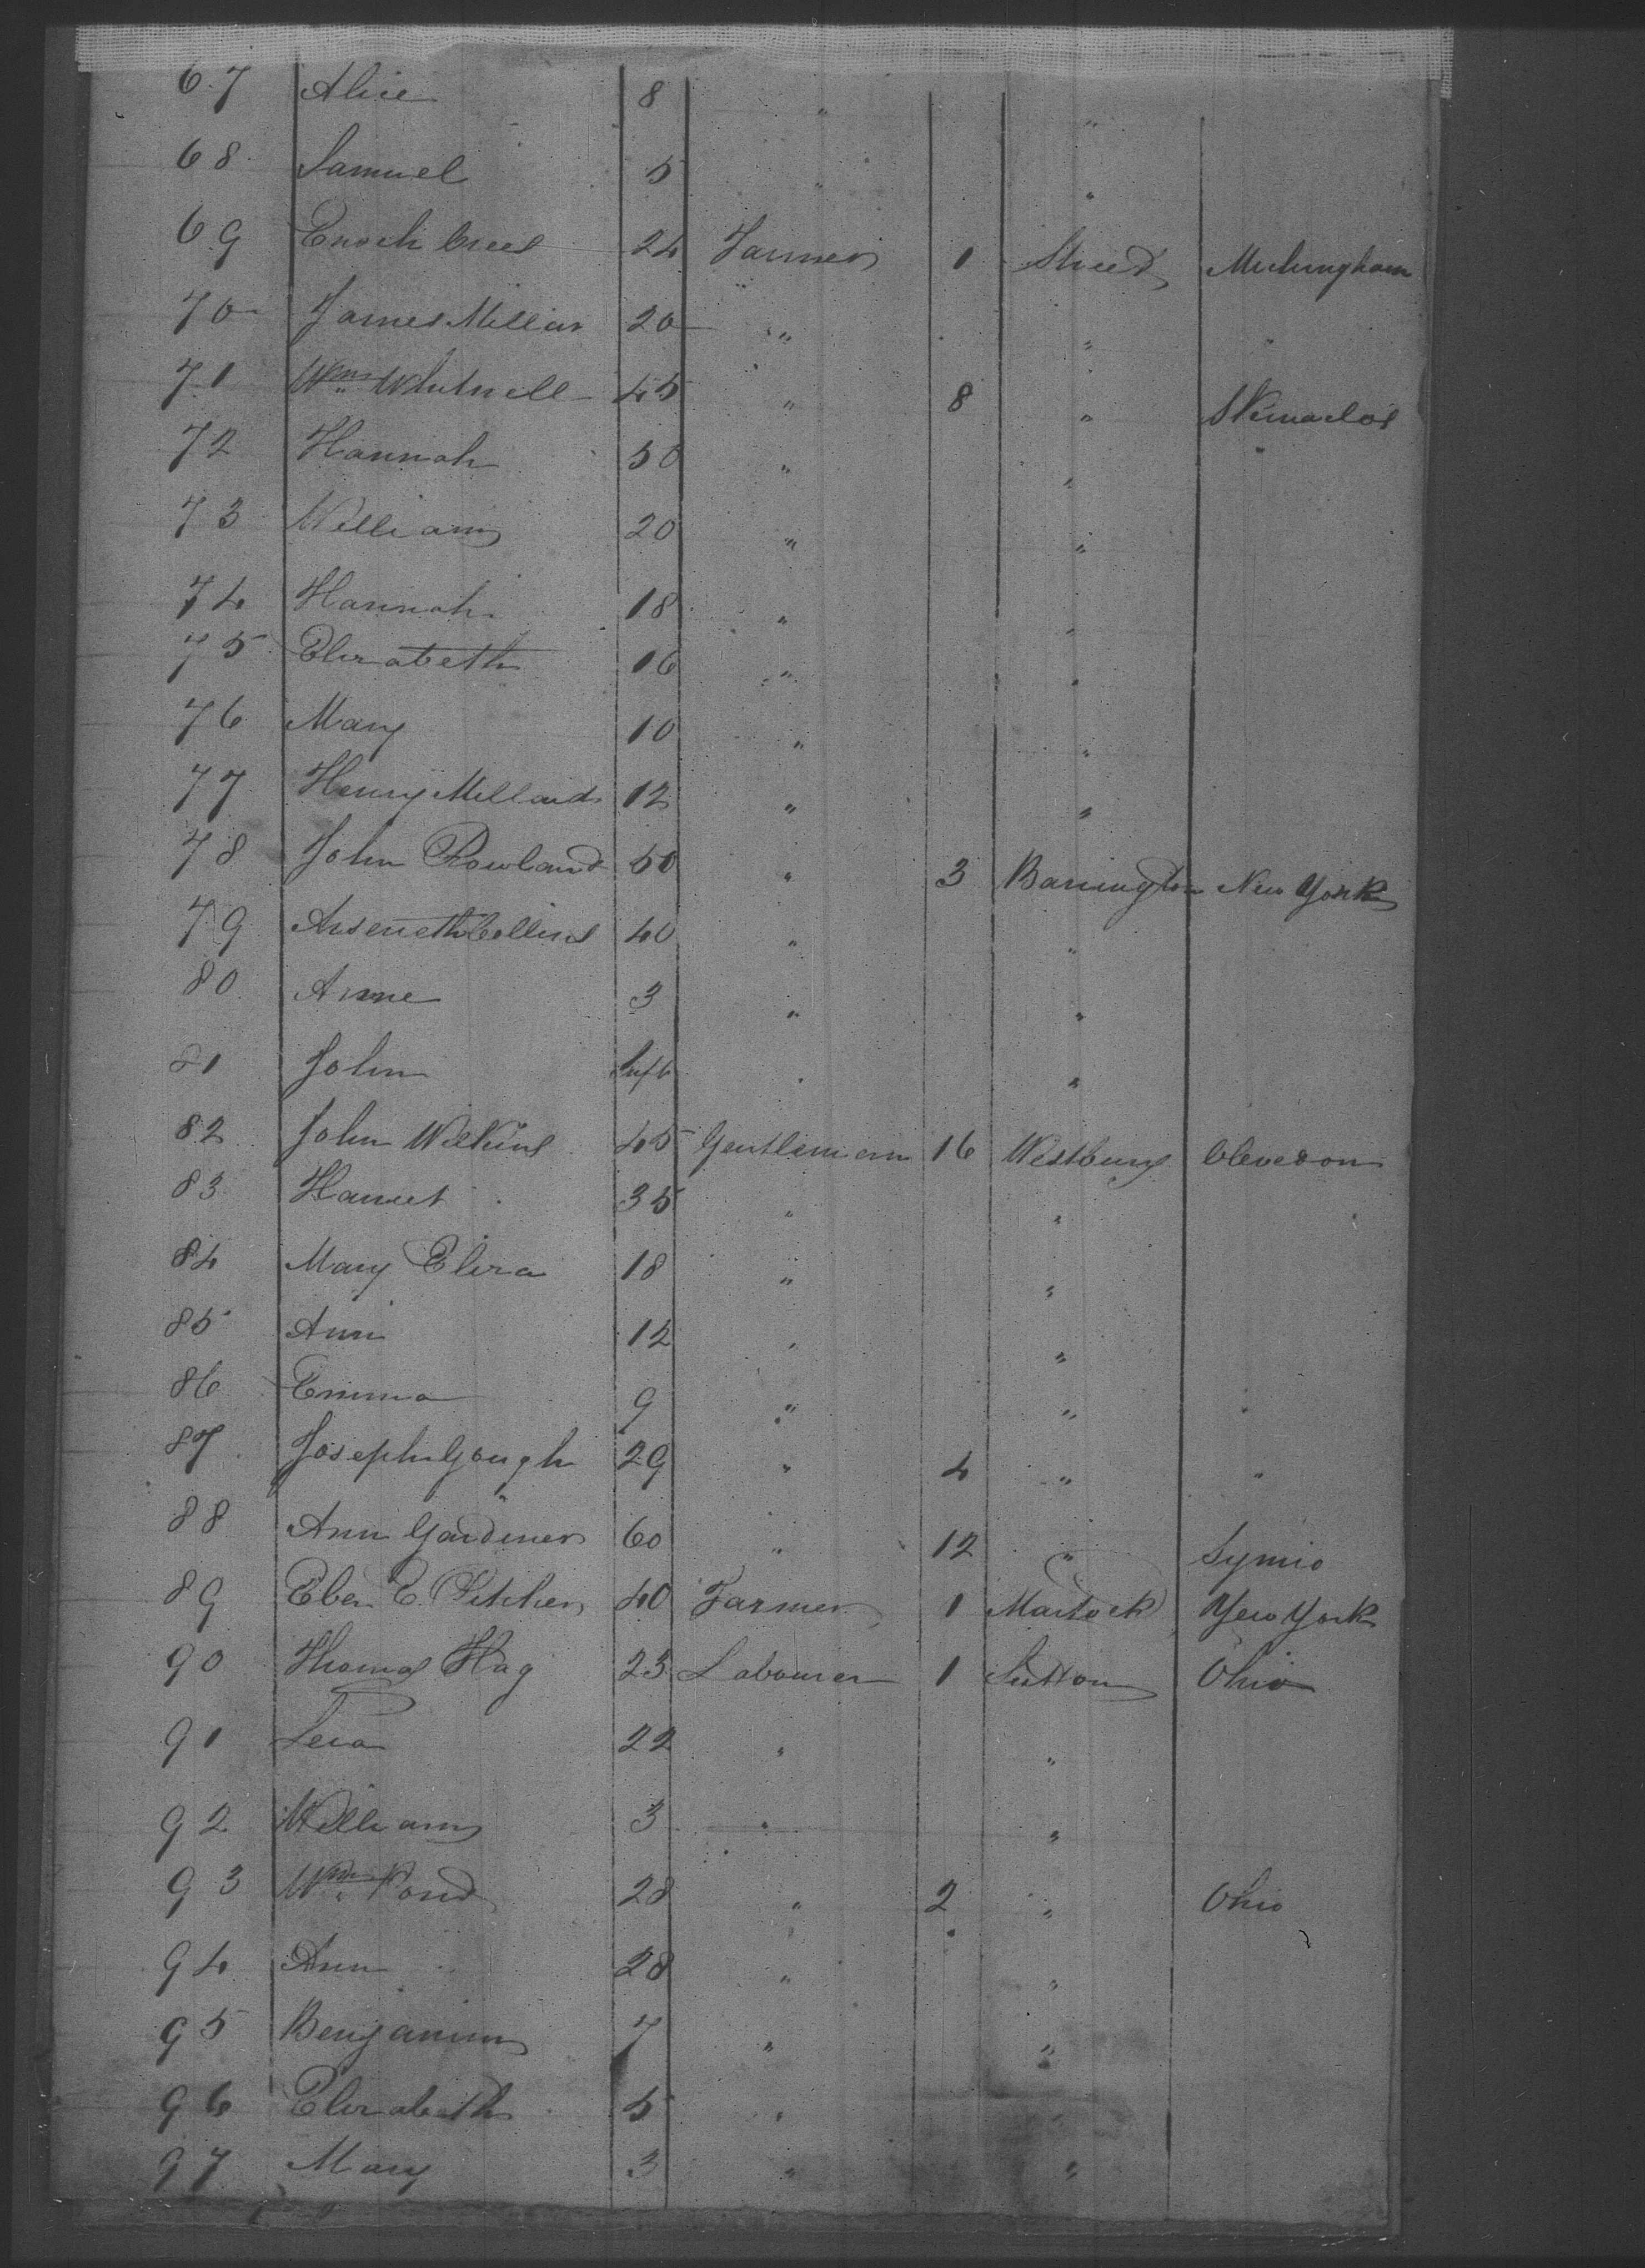 67 Alice 8 " "
68 Samuel 5 " "
69 Enoch Creed 24 Farmer 1 Street Muhingham
70 James Millar 20 " " "
71 Wm Whitnell 45 " 8 " Skinados
72 Hannah 50 " " "
73 William 20 " "
74 Hannah 18 " "
75 Elizabeth 16 " "
76 Mary 10 " "
77 Henry Millard 12 " "
78 John Rowland 50 " 3 Barrington New York
79 Arseneth Collins 40 " "
80 Anne 3 " "
81 John Inft " "
82 John Wilkins 45 Gentleman 16 Westbury Clevedon
83 Harriet 35 " "
84 Mary Eliza 18 " "
85 Ann 12 " "
86 Emma 9 " " "
87 Joseph Gough 29 " 4 " "
88 Ann Gardiner 60 " 12 " Symio
89 Eben E. Pitcher 40 Farmer 1 Martock New York
90 Thomas Hag 23 Labourer 1 Sutton Ohio
91 Lena 22 " "
92 William 3 " "
93 Wm Pond 28 " 2 " Ohio
94 Ann 28 " "
95 Benjamin 7 " "
96 Elizabeth 5 " "
97 Mary 3 " "